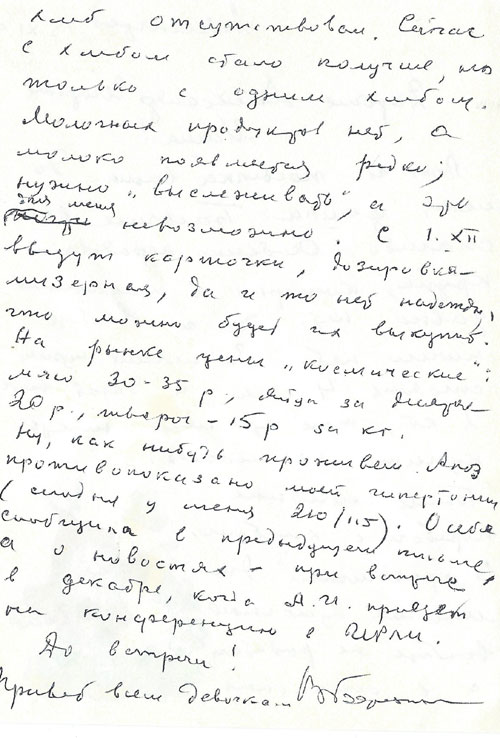 хлеб отсутствовал. Сейчас
с хлебом стало получше, но
только с одним хлебом.
Молочных продуктов нет, а
молоко появляется редко;
нужно „выслеживать“, а это
для меня невозможно. С 1.XII
введут карточки, дозировка –
мизерная, да и то нет надежды,
что можно будет их выкупить.
На рынке цены „космические“:
мясо 30-35 р., яйца за десяток –
20 р., творог – 15 р за кг.
Ну, как-нибудь проживем.
противопоказано моей гипертонии
(сегодня у меня 210/115). О себе
сообщила в предыдущем письме,
а о новостях – при встрече
в декабре, когда А.И. приедет
на конференцию в ИРЛИ.
До встречи!
Привет всем девочкам